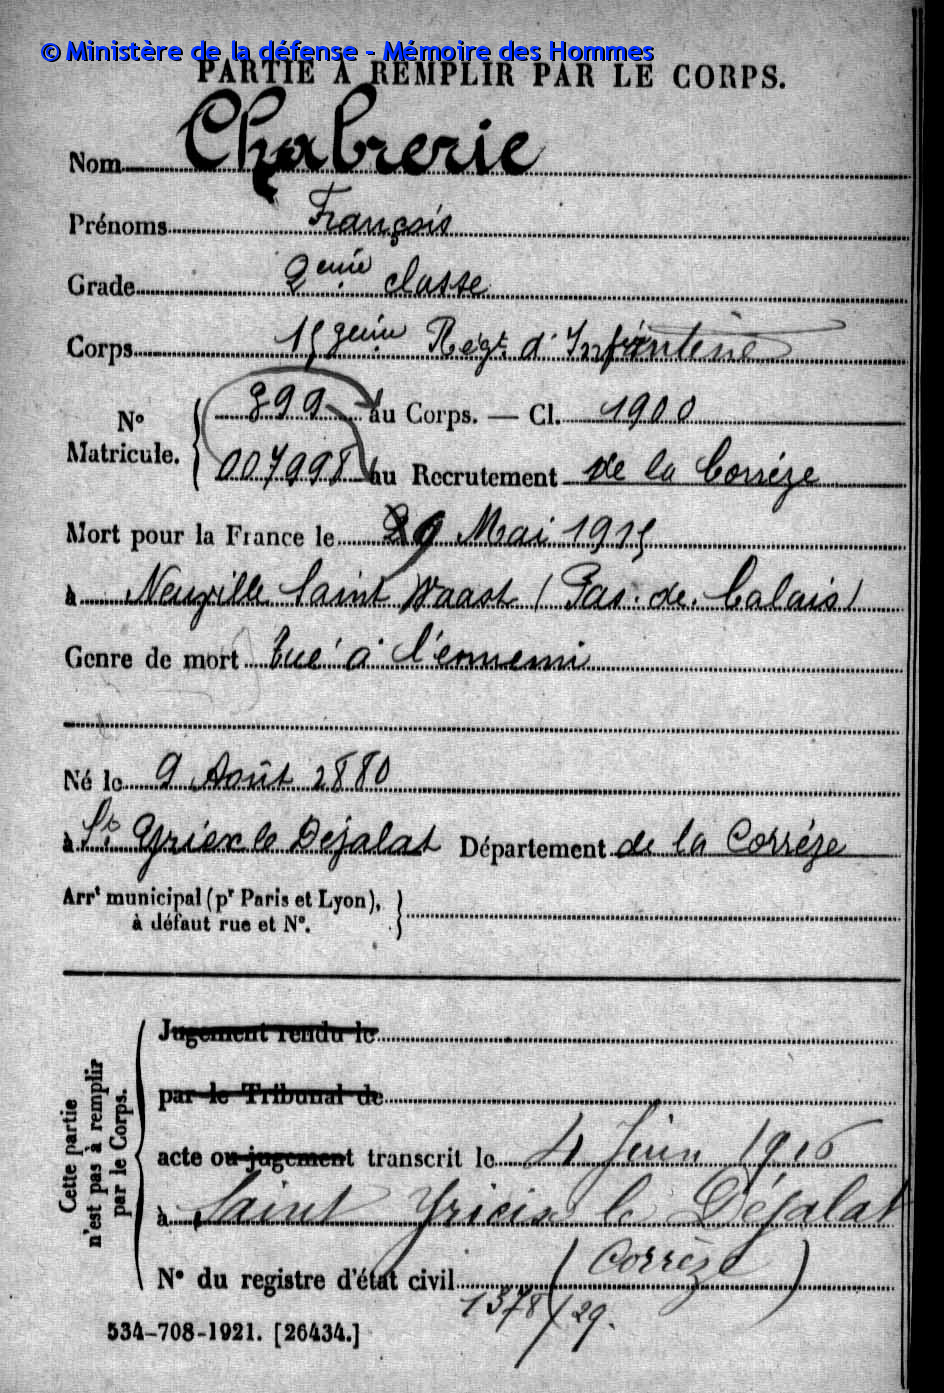 © Ministère de la défense - Mémoire des Hommes
PARTIE A REMPLIR PAR LE CORPS.
Nom Chabrerie
Prénoms François
Grade 2eme classe
Corps Régt d'Infanterie
N° Matricule. 899 au Corps. — Cl. 1900
007998 au Recrutement de la Corréze
Mort pour la France le 29 Mai 1915
à Neuville Saint Waast (Pas. de. Calais)
Genre de mort Tué à l'ennemi
Né le 9 Août 1880
à St Yrieix le Dejalat Département de la Corréze
Arrt municipal (pr Paris et Lyon),
à défaut rue et N°.
Cette partie
n'est pas à remplir
par le Corps.
Jugement rendu le
par le Tribunal de
acte ou jugement transcrit le 4 Juin 1916
à Saint Yrieix le Déjalat
(Corrèze)
N° du registre d'état civil
1378/29.
534-708-1921. [26434.]